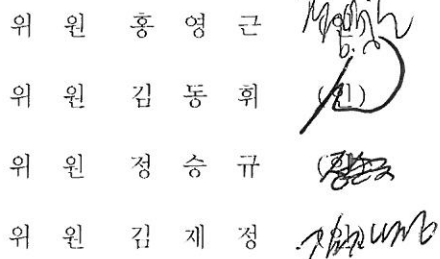 위 원 홍 영 근
위 원 김 동 휘 (인)
위 원 정 승 규
위 원 김 재 정